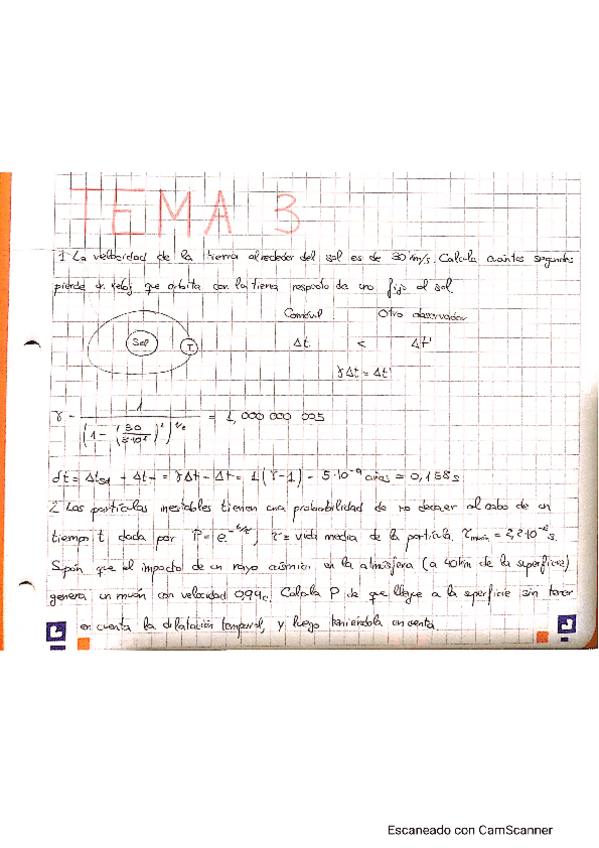 TEMA 3
1 La velocidad de la tierra alrededor del sol es de 30 m/s. Calcula cuántos segundos
pierde un reloj que orbita con la tierra respecto de uno fijo al sol.
Comóvil Otro observador
Sol T Δt < Δt'
γΔt = Δt'
γ = 1 / (1 - (30 / 3·10⁵)²)^1/2 = 1,000 000 005
dt = Δt + Δt = γΔt - Δt = 1(γ-1) = 5·10⁻⁹ años = 0,158 s
2 Las partículas inestables tienen una probabilidad de no decaer al cabo de un
tiempo t dada por P = e^-t/τ, τ = vida media de la partícula. τmuón = 2,2·10⁻⁶ s.
Supón que el impacto de un rayo cósmico en la atmósfera (a 40 km de la superficie)
genera un muón con velocidad 0,94c. Calcula P de que llegue a la superficie sin tener
en cuenta la dilatación temporal, y luego teniéndola en cuenta.
Escaneado con CamScanner